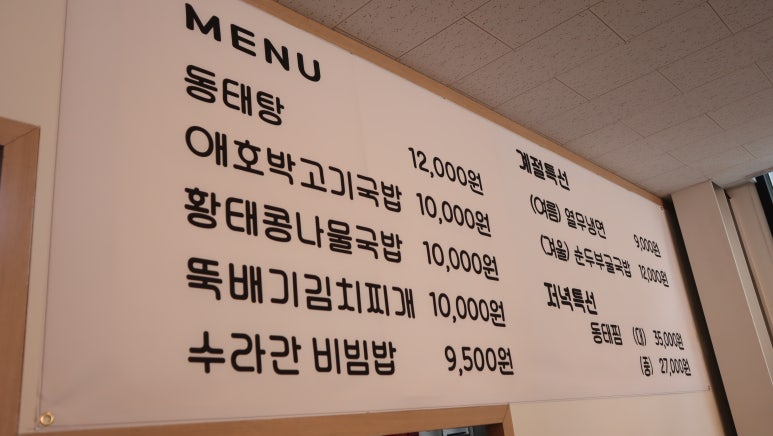 MENU
동태탕 12,000원
애호박고기국밥 10,000원
황태콩나물국밥 10,000원
뚝배기김치찌개 10,000원
수라간 비빔밥 9,500원
계절특선
(여름) 열무냉면 9,000원
(겨울) 순두부굴국밥 12,000원
저녁특선
동태찜 (대) 35,000원
(중) 27,000원